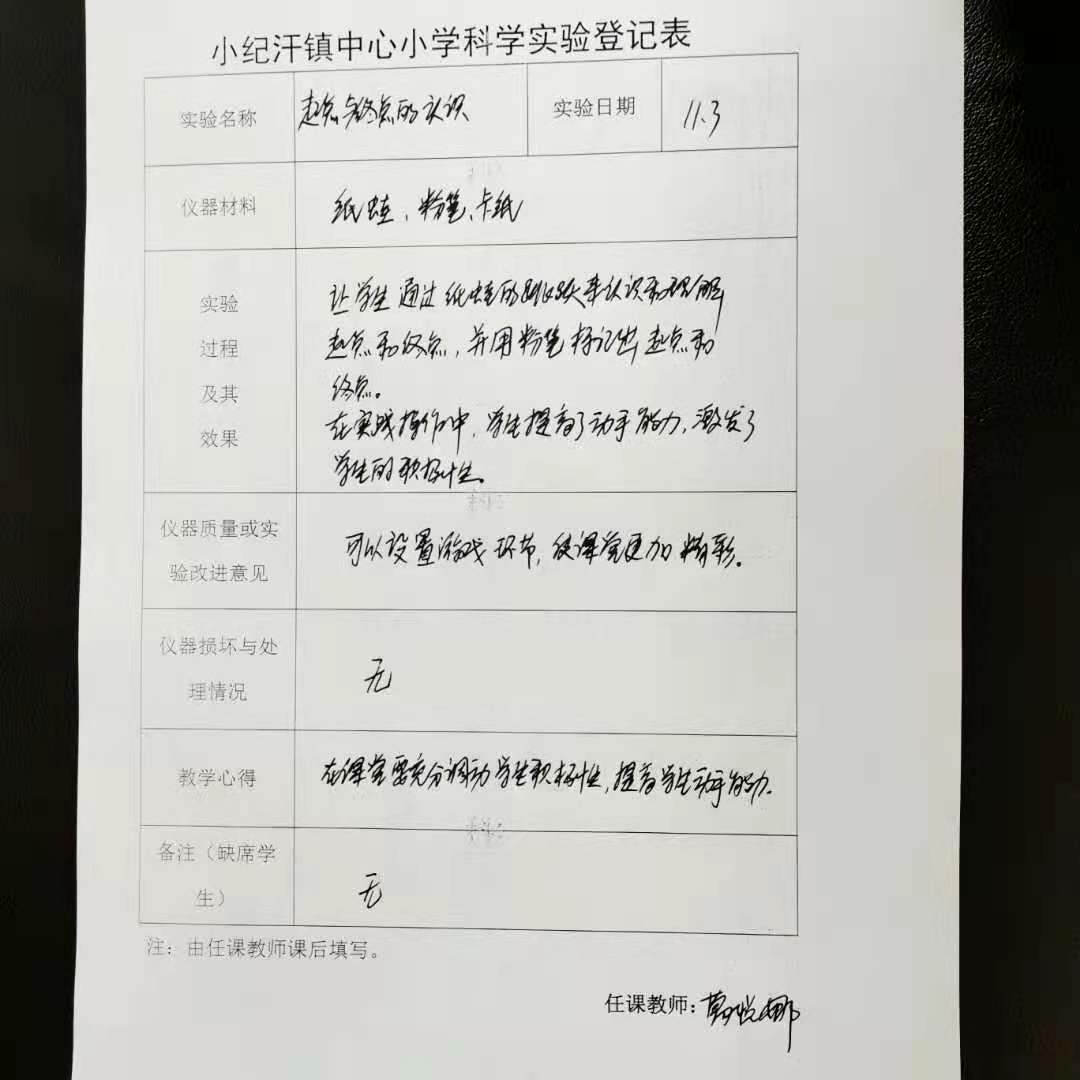 小纪汗镇中心小学科学实验登记表
实验名称 起点与终点的认识 实验日期 11.3
仪器材料 纸蛙、粉笔、卡纸
实验
过程
及其
效果
让学生通过纸蛙的跳跃来认识和理解
起点和终点，并用粉笔标记出起点和
终点。
在实践操作中，学生提高了动手能力，激发了
学生的积极性。
仪器质量或实
验改进意见
可以设置游戏环节，使课堂更加精彩。
仪器损坏与处
理情况
无
教学心得 在课堂要充分调动学生积极性，提高学生动手能力.
备注（缺席学
生）
无
注：由任课教师课后填写。
任课教师：